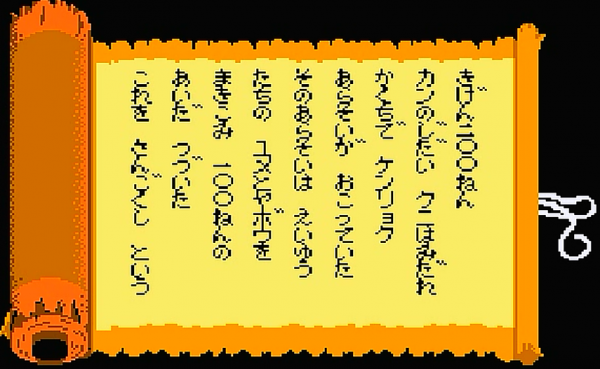 きげん二〇〇ねん
カンのじだい クニはみだれ
かくちで ケンリョク
あらそいが おこっていた
そのあらそいは えいゆう
たちの ユメとヤボウを
まきこみ 一〇〇ねんの
あいだ つづいた
これを さんごくし という